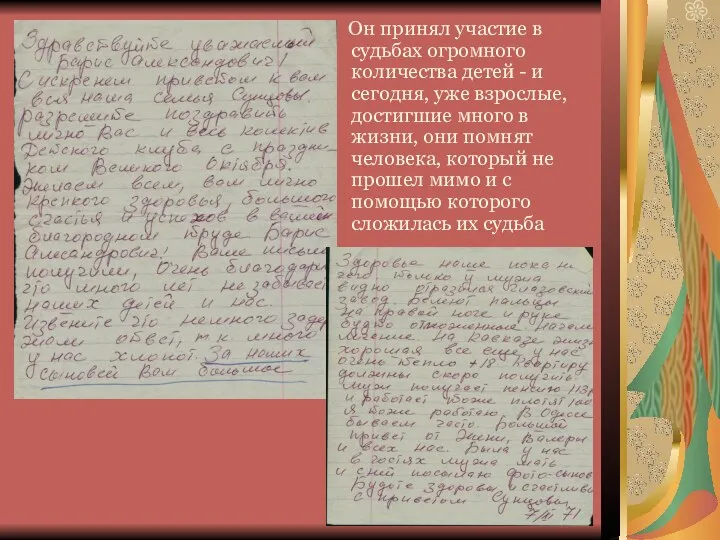 Здравствуйте уважаемый
Барис Александович!
С искренем приветом к вам
вся наша семья Сунцовы.
разрешите поздравить
лично Вас и весь колектив
Детского клуба с праздни-
ком Великого Октября.
Желаем всем, вам лично
крепкого здоровья, большого
счастья и успехов в вашем
благородном труде Барис
Александрович! Ваше письмо
получили, Очень благодарны
что много лет не забываете
наших детей и нас.
Извените что немного задер
жали ответ, т.к. много
у нас хлопот. За наших
сыновей Вам большое
Он принял участие в
судьбах огромного
количества детей - и
сегодня, уже взрослые,
достигшие много в
жизни, они помнят
человека, который не
прошел мимо и с
помощью которого
сложилась их судьба
Здоровье наше пока ни
чего, только у мужа
видно
завод. Белеют пальцы
на правой ноге и руке
будно отмороженные начали
лечение на Кавказе жизнь
хорошая все еще у нас
очень тепло +18 Квартиру
должны скоро получить
муж получает пенсию
и работает тоже платят
я тоже работаю. В Одессе
бываем часто. Большой
привет от Жени, Валеры
и всех нас. Была у нас
в гостях мужа мать
и с ней посылаю фото-сынов
Будьте здоровы и счастливы
с приветом Сунцовы
71